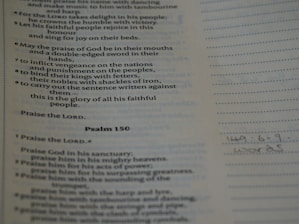 praise his name with dancing
and make music to him with tambourine
and harp.
For the LORD takes delight in his people;
he crowns the humble with victory.
Let his faithful people rejoice in this
honour
and sing for joy on their beds.
May the praise of God be in their mouths
and a double-edged sword in their
hands,
to inflict vengeance on the nations
and punishment on the peoples,
to bind their kings with fetters,
their nobles with shackles of iron,
to carry out the sentence written against
them –
this is the glory of all his faithful
people.
Praise the LORD.
Psalm 150
Praise the LORD.
Praise God in his sanctuary;
praise him in his mighty heavens.
Praise him for his acts of power;
praise him for his surpassing greatness.
Praise him with the sounding of the
trumpet,
praise him with the harp and lyre,
praise him with tambourine and dancing,
praise him with the strings and pipe,
praise him with the clash of cymbals,
praise him with resounding cymbals.